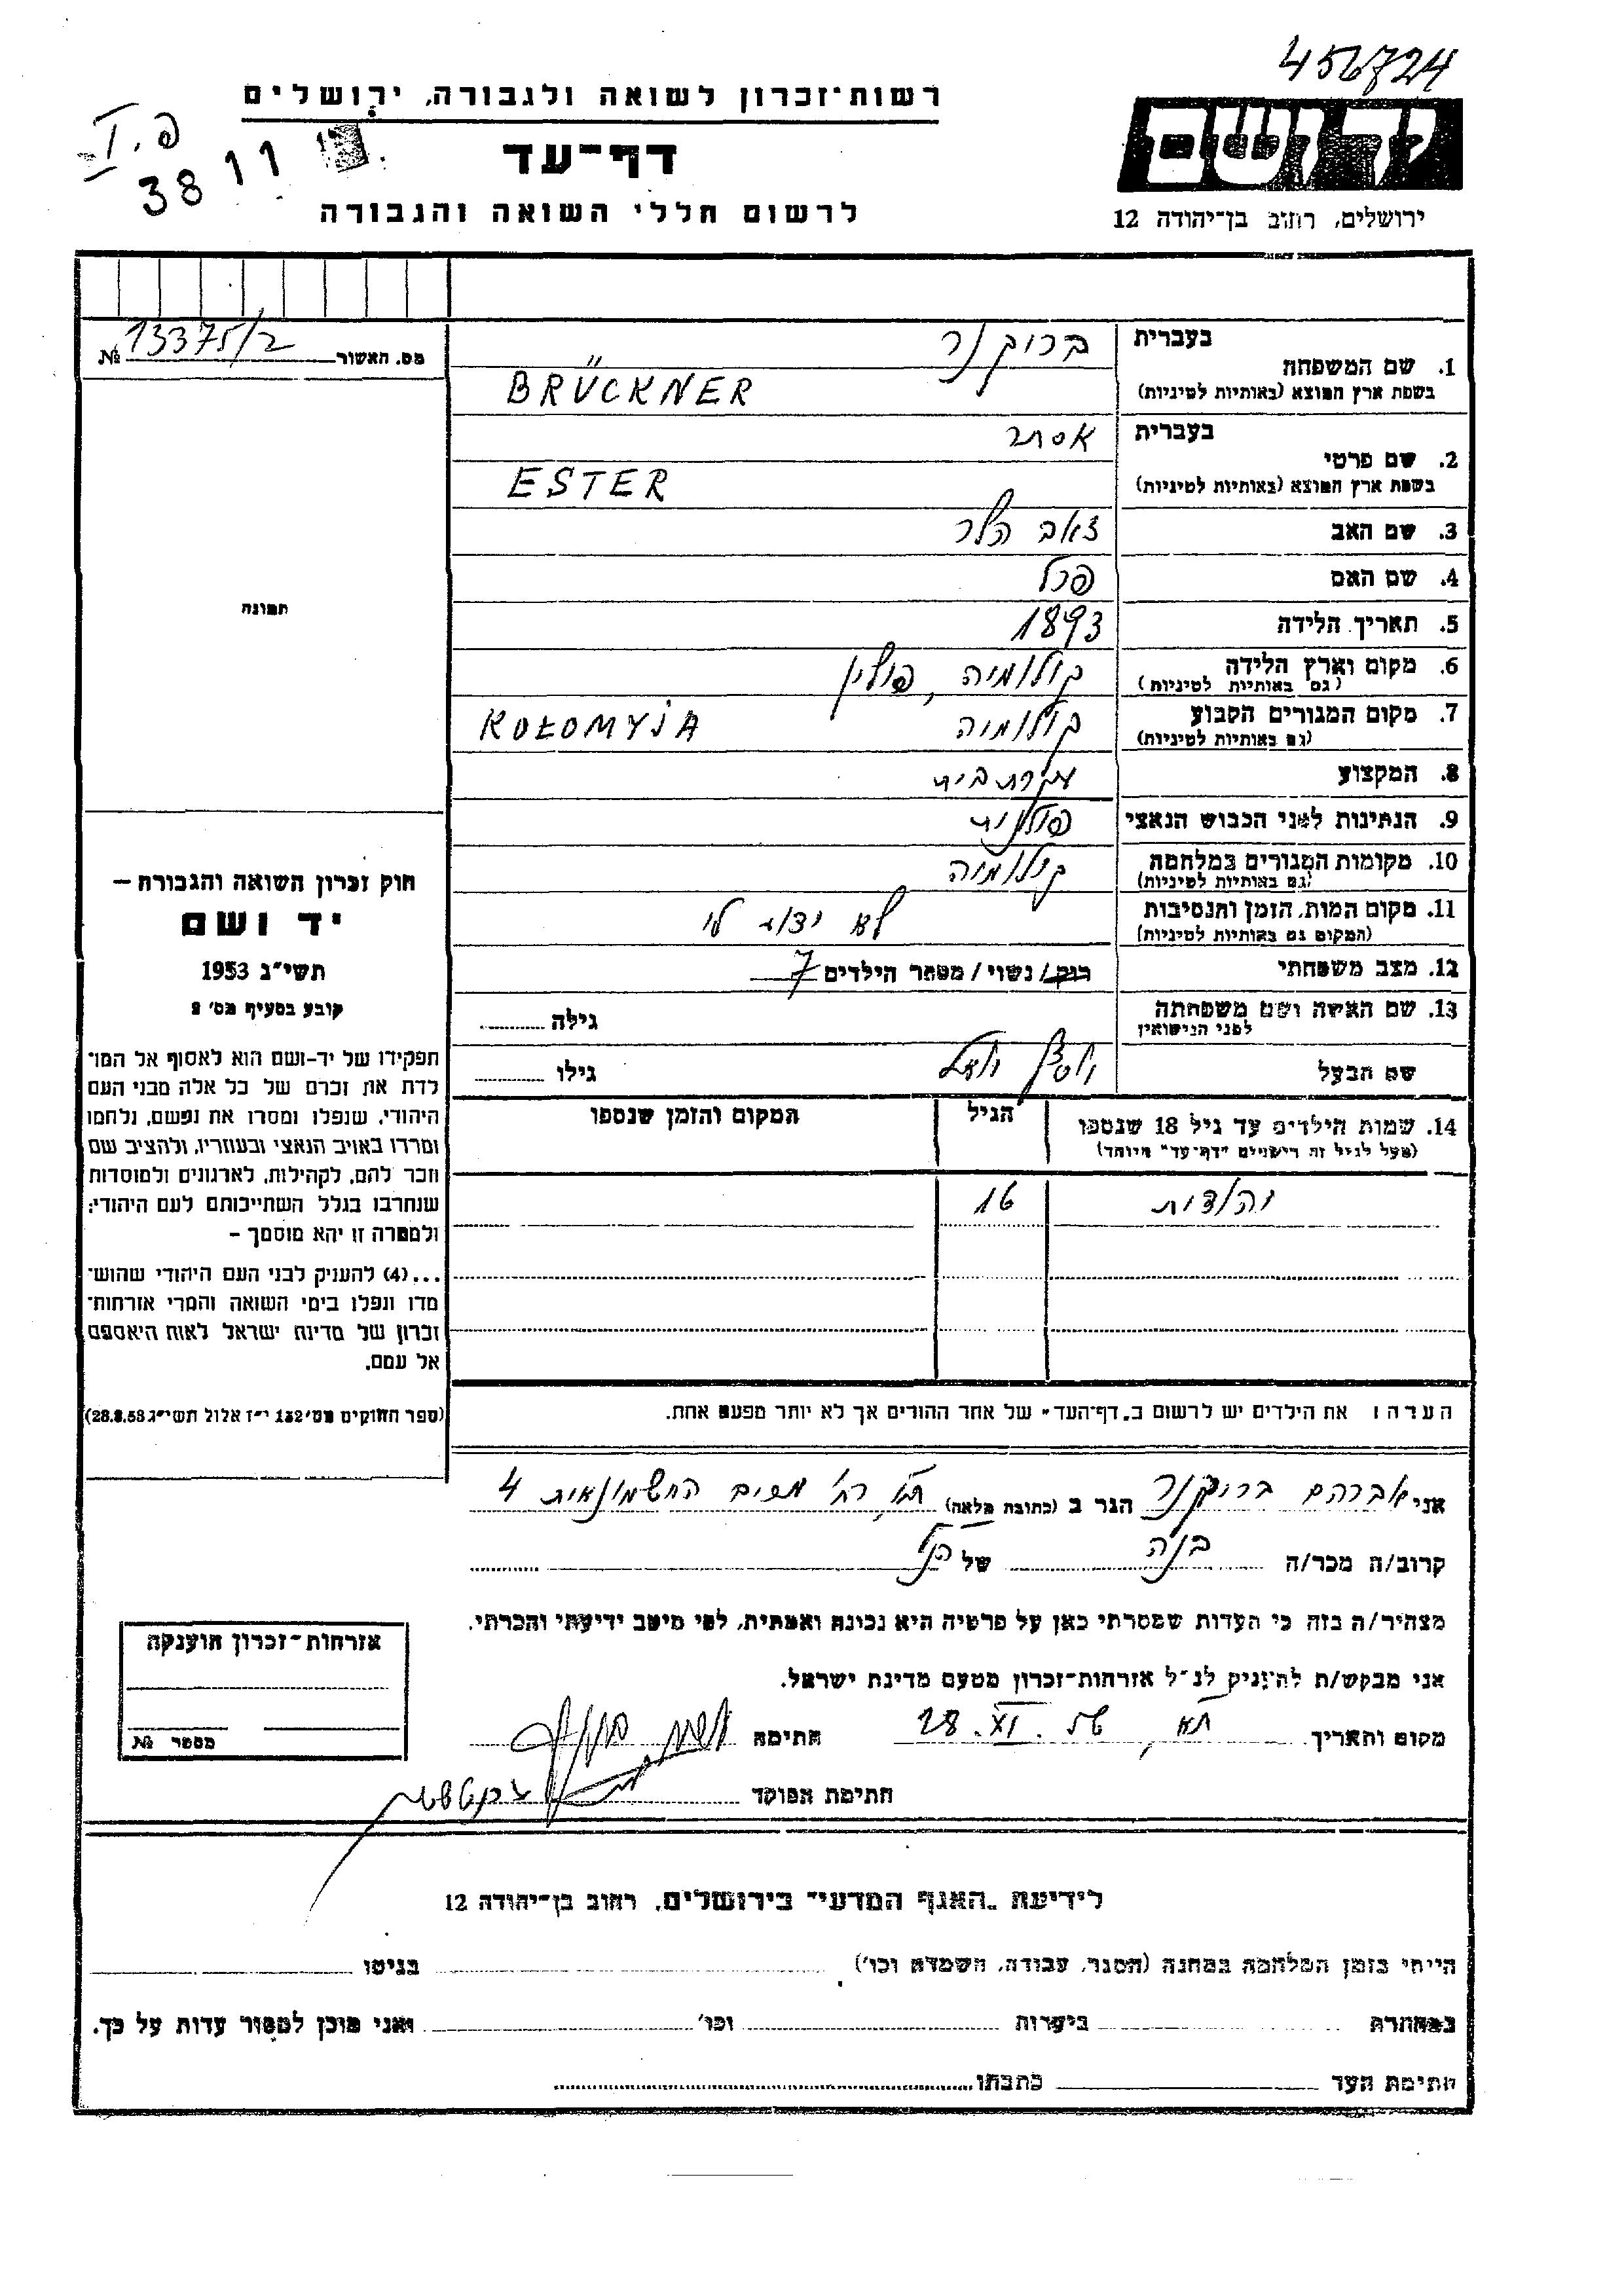 456724
רשות־זכרון לשואה ולגבורה, ירושלים
פ. I
3811
דף־עד
לרשום חללי השואה והגבורה
ידושם
ירושלים, רחוב בן־יהודה 12
מס. האשור № 13375/2
1. שם המשפחה
בעברית ברוקנר
בשפת ארץ המוצא (באותיות לטיניות) BRÜCKNER
2. שם פרטי
בעברית אסתר
בשפת ארץ המוצא (באותיות לטיניות) ESTER
3. שם האב זאב הלר
4. שם האם פרל
5. תאריך הלידה 1893
6. מקום וארץ הלידה קולומיה, פולין
(גם באותיות לטיניות)
7. מקום המגורים הקבוע קולומיה KOŁOMYJA
(גם באותיות לטיניות)
8. המקצוע עקרת בית
9. הנתינות לפני הכבוש הנאצי פולנית
10. מקומות המגורים במלחמה קולומיה
(גם באותיות לטיניות)
11. מקום המות, הזמן והנסיבות לא ידוע לי
(המקום גם באותיות לטיניות)
12. מצב משפחתי רווק / נשוי / מספר הילדים 7
13. שם האשה ושם משפחתה
לפני הנישואין
גילה
שם הבעל
גילו
14. שמות הילדים עד גיל 18 שנספו
(מעל לגיל זה רישמים "דף־עד" מיוחד)
הגיל
המקום והזמן שנספו
16
הערה: את הילדים יש לרשום ב"דף־העד" של אחד ההורים אך לא יותר מפעם אחת.
תמונה
חוק זכרון השואה והגבורה —
יד ושם
תשי"ג 1953
קובע בסעיף מס' 2
תפקידו של יד-ושם הוא לאסוף אל המו־
לדת את זכרם של כל אלה מבני העם
היהודי, שנפלו ומסרו את נפשם, נלחמו
ומרדו באויב הנאצי ובעוזריו, ולהציב שם
וזכר להם, לקהילות, לארגונים ולמוסדות
שנחרבו בגלל השתייכותם לעם היהודי;
ולמטרה זו יהא מוסמך —
...(4) להעניק לבני העם היהודי שהוש־
מדו ונפלו בימי השואה והמרי אזרחות־
זכרון של מדינת ישראל לאות היאספם
אל עמם.
(ספר החוקים מס' 132 י"ז אלול תשי"ג 28.8.53)
אני אברהם ברוקנר הגר ב (כתובת מלאה) ת"א, רח' החשמונאית 4
קרוב/ה מכר/ה בנה של הנ"ל
מצהיר/ה בזה כי העדות שמסרתי כאן על פרטיה היא נכונה ואמתית, לפי מיטב ידיעתי והכרתי.
אני מבקש/ת להעניק לנ"ל אזרחות־זכרון מטעם מדינת ישראל.
מקום ותאריך ת"א, 28.XI.56 חתימה
חתימת הפוקד
אזרחות־זכרון הוענקה
מספר №
לידיעת "האגף המדעי" בירושלים, רחוב בן־יהודה 12
הייתי בזמן המלחמה במחנה (הסגר, עבודה, השמדה וכו') בגיטו
במחתרת ביערות וכו' ואני מוכן למסור עדות על כך.
חתימת העד כתבתו